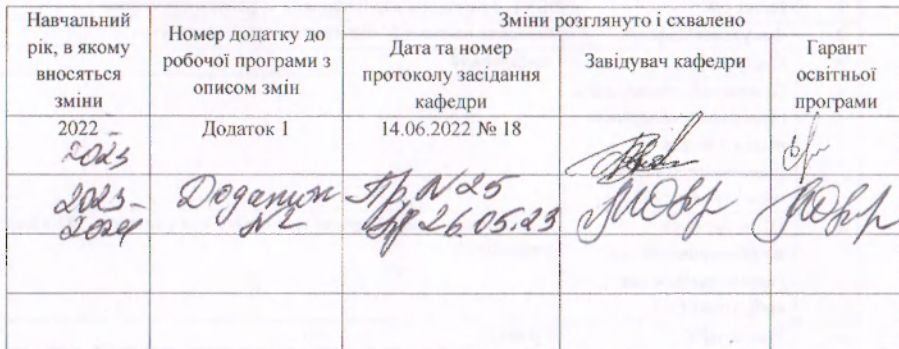 Навчальний
рік, в якому
вносяться
зміни
Номер додатку до
робочої програми з
описом змін
Зміни розглянуто і схвалено
Дата та номер
протоколу засідання
кафедри
Завідувач кафедри
Гарант
освітньої
програми
2022 -
2023
Додаток 1
14.06.2022 № 18
2023-
2024
Додаток
№2
Пр. № 25
від 26.05.23